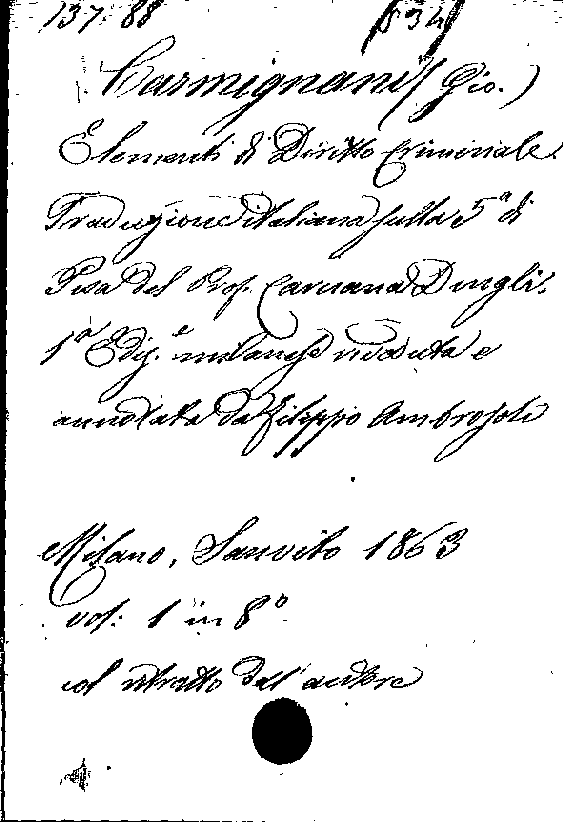 137. 88
Carmignani (Gio.)
Elementi di Diritto Criminale.
Traduzione italiana sulla 5ª di
Pisa del Prof. Caruana Dingli.
1ª Ediz.e milanese riveduta e
annotata da Filippo Ambrosoli
Milano, Sanvito 1863
vol: 1 in 8º
col ritratto dell'autore